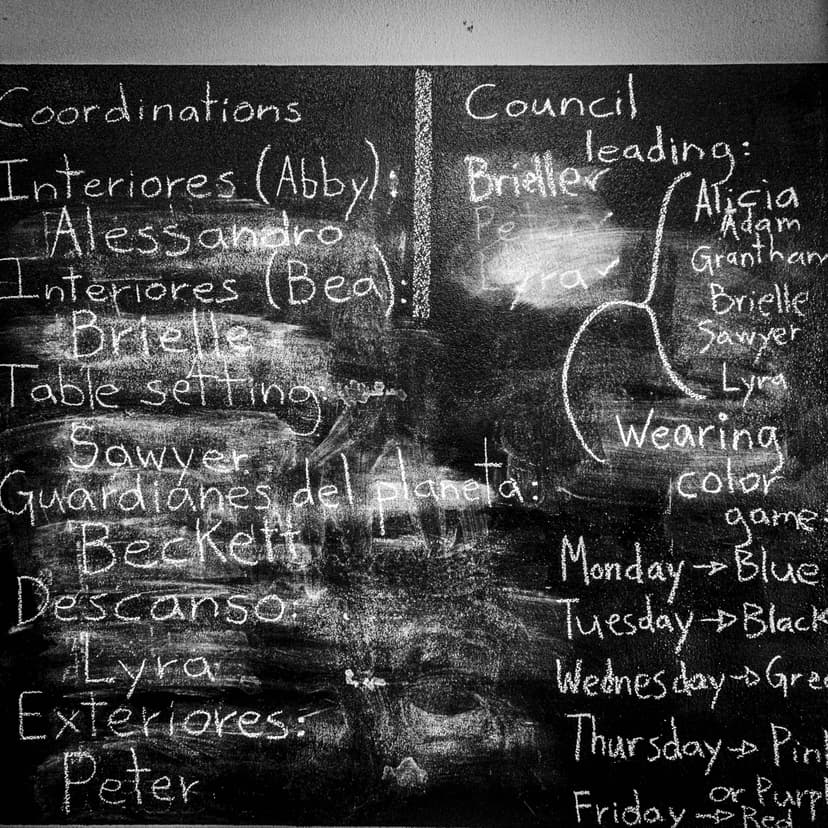 Coordinations
Interiores (Abby):
Alessandro
Interiores (Bea):
Brielle
Table setting:
Sawyer
Guardianes del planeta:
Beckett
Descanso:
Lyra
Exteriores:
Peter
Council
leading:
Brielle ✓
Peter ✓
Lyra ✓
Alicia
Adam
Grantham
Brielle
Sawyer
Lyra
Wearing
color
game
Monday → Blue
Tuesday → Black
Wednesday → Gree
Thursday → Pink
or Purpl
Friday → Red